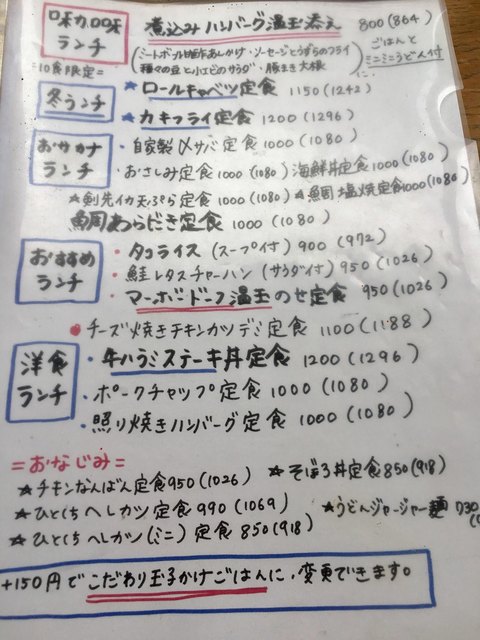 味加味ランチ
煮込みハンバーグ温玉添え 800(864)
(ミートボール甘酢あんかけ・ソーセージとうずらのフライ
種々の豆と小エビのサラダ・豚まき大根)
ごはんと
ミニミニうどん付
=10食限定=
冬ランチ
★ロールキャベツ定食 1150(1242)
★カキフライ定食 1200(1296)
おサカナランチ
・自家製〆サバ定食 1000(1080)
・おさしみ定食 1000(1080) 海鮮丼定食 1000(1080)
★剣先イカ天ぷら定食 1000(1080) ★鯛塩焼定食1000(1080)
鯛あらだき定食 1000(1080)
おすすめランチ
・タコライス(スープ付) 900(972)
・鮭レタスチャーハン(サラダ付) 950(1026)
・マーボードーフ温玉のせ定食 950(1026)
●チーズ焼きチキンカツデミ定食 1100(1188)
洋食ランチ
・牛ハラミステーキ丼定食 1200(1296)
・ポークチャップ定食 1000(1080)
・照り焼きハンバーグ定食 1000(1080)
=おなじみ=
★チキンなんばん定食950(1026) ★そぼろ丼定食850(918)
★ひとくちヘレカツ定食 990(1069) ★うどんジャージャー麺 730
★ひとくちヘレカツ(ミニ)定食 850(918)
+150円でこだわり玉子かけごはんに、変更できます。